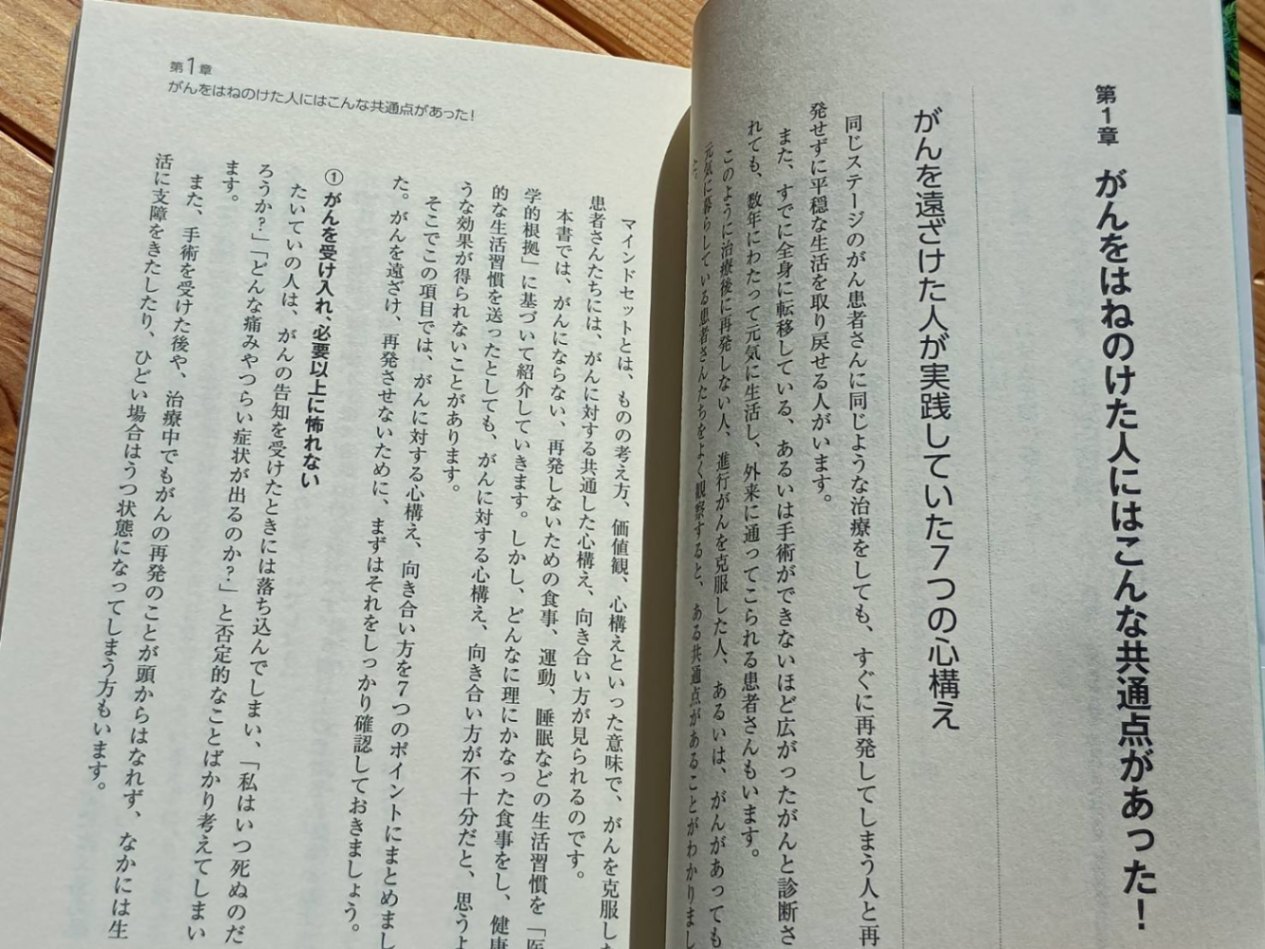 第1章 がんをはねのけた人にはこんな共通点があった！
がんを遠ざけた人が実践していた7つの心構え
同じステージのがん患者さんに同じような治療をしても、すぐに再発してしまう人と再
発せずに平穏な生活を取り戻せる人がいます。
また、すでに全身に転移している、あるいは手術ができないほど広がったがんと診断さ
れても、数年にわたって元気に生活し、外来に通ってこられる患者さんもいます。
このように治療後に再発しない人、進行がんを克服した人、あるいは、がんがあっても
元気に暮らしている患者さんたちをよく観察すると、ある共通点があることがわかりまし
第1章
がんをはねのけた人にはこんな共通点があった！
マインドセットとは、ものの考え方、価値観、心構えといった意味で、がんを克服した
患者さんたちには、がんに対する共通した心構え、向き合い方が見られるのです。
本書では、がんにならない、再発しないための食事、運動、睡眠などの生活習慣を「医
学的根拠」に基づいて紹介していきます。しかし、どんなに理にかなった食事をし、健康
的な生活習慣を送ったとしても、がんに対する心構え、向き合い方が不十分だと、思うよ
うな効果が得られないことがあります。
そこでこの項目では、がんに対する心構え、向き合い方を7つのポイントにまとめまし
た。がんを遠ざけ、再発させないために、まずはそれをしっかり確認しておきましょう。
① がんを受け入れ、必要以上に怖れない
たいていの人は、がんの告知を受けたときには落ち込んでしまい、「私はいつ死ぬのだ
ろうか？」「どんな痛みやつらい症状が出るのか？」と否定的なことばかり考えてしまい
ます。
また、手術を受けた後や、治療中でもがんの再発のことが頭からはなれず、なかには生
活に支障をきたしたり、ひどい場合はうつ状態になってしまう方もいます。